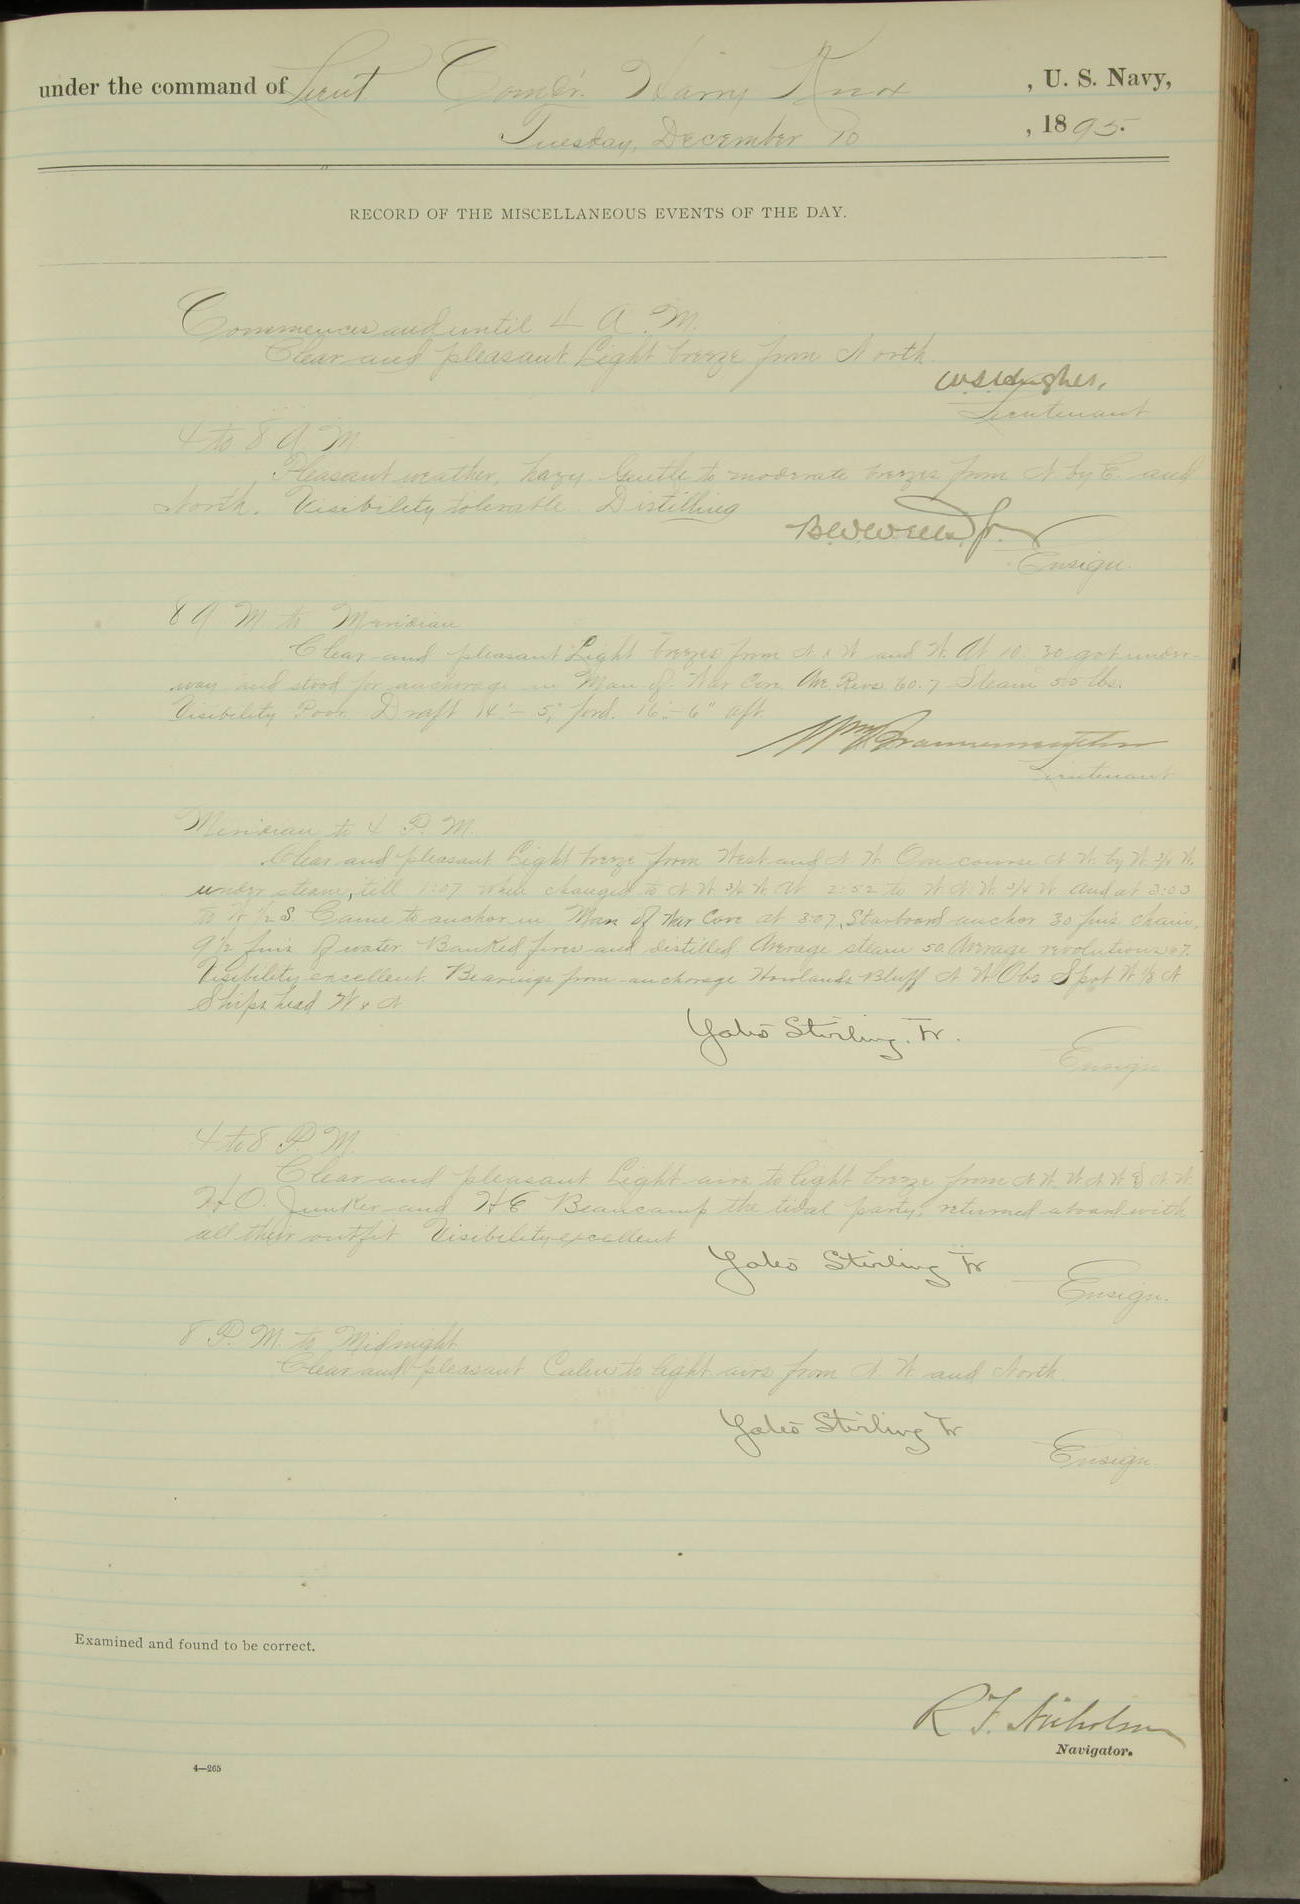 under the command of Lieut. Comdr. Harry Knox, U. S. Navy,
Tuesday, December 10, 1895.
RECORD OF THE MISCELLANEOUS EVENTS OF THE DAY.
Commences and until 4 A. M.
Clear and pleasant. Light breeze from North.
W. S. Hughes,
Lieutenant
4 to 8 A. M.
Pleasant weather, hazy. Gentle to moderate breezes from N. by E. and
North. Visibility tolerable. Distilling
B. W. Wells, Jr.
Ensign.
8 A. M. to Meridian
Clear and pleasant. Light breezes from N & W and W. At 10:30 got under-
way and stood for anchorage in Man of War Cove. Ave. Revs. 60.7 Steam 50 lbs.
Visibility Poor. Draft 14'-5" ford. 16'-6" aft.
Lieutenant
Meridian to 4 P. M.
Clear and pleasant Light breeze from West and N W. On course N W. by W 3/4 W.
under steam, till 1:07 when changed to N W 3/4 W At 2:52 to W N W 3/4 W And at 3:03
to W 1/2 S Came to anchor in Man of War Cove at 3:07, Starboard anchor 30 fms chain,
9 1/2 fms of water. Banked fires and distilled Average steam 50. Average revolutions 67.
Visibility excellent. Bearings from anchorage Howlands Bluff N W Obs Spot W 1/8 N
Ships head W & N
Yates Stirling. Jr.
Ensign
4 to 8 P. M.
Clear and pleasant Light airs to light breeze from N W. W N W & N W.
H O. Junker and H E Beaucamp the tidal party, returned aboard with
all their outfit Visibility excellent
Yates Stirling Jr
Ensign.
8 P. M. to Midnight
Clear and pleasant Calm to light airs from N W and North
Yates Stirling Jr
Ensign
Examined and found to be correct.
R F. Nicholson
Navigator.
4—265